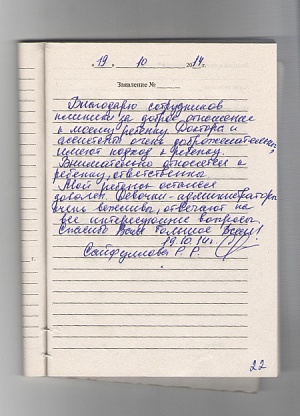 « 19 » 10 2014 г.
Заявление №
Благодарю сотрудников
клиники за доброе отношение
к моему ребенку. Доктора и
ассистенты очень доброжелательны,
имеют подход к ребенку.
Внимательно относятся к
ребенку, ответственно.
Мой ребенок остался
доволен. Девочки-администраторы
очень вежливы, отвечают на
все интересующие вопросы.
Спасибо Вам большое Всем!
19.10.14г.
Сайфуллова Р. Р.
22